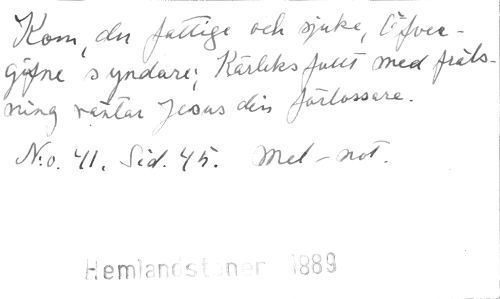 Kom, du fattige och sjuke, Öfver-
gifne syndare; Kärleksfullt med fräls-
ning väntar Jesus din förlossare.
N:o. 41. Sid. 45. Mel-not.
Hemlandstoner 1889